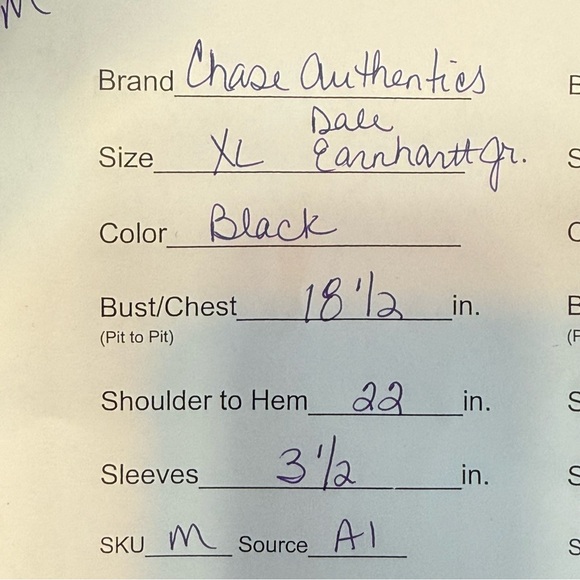 m
Brand Chase Authentics
Dale
Size XL Earnhartt Jr.
Color Black
Bust/Chest 18 1/2 in.
(Pit to Pit)
Shoulder to Hem 22 in.
Sleeves 3 1/2 in.
SKU M Source A1